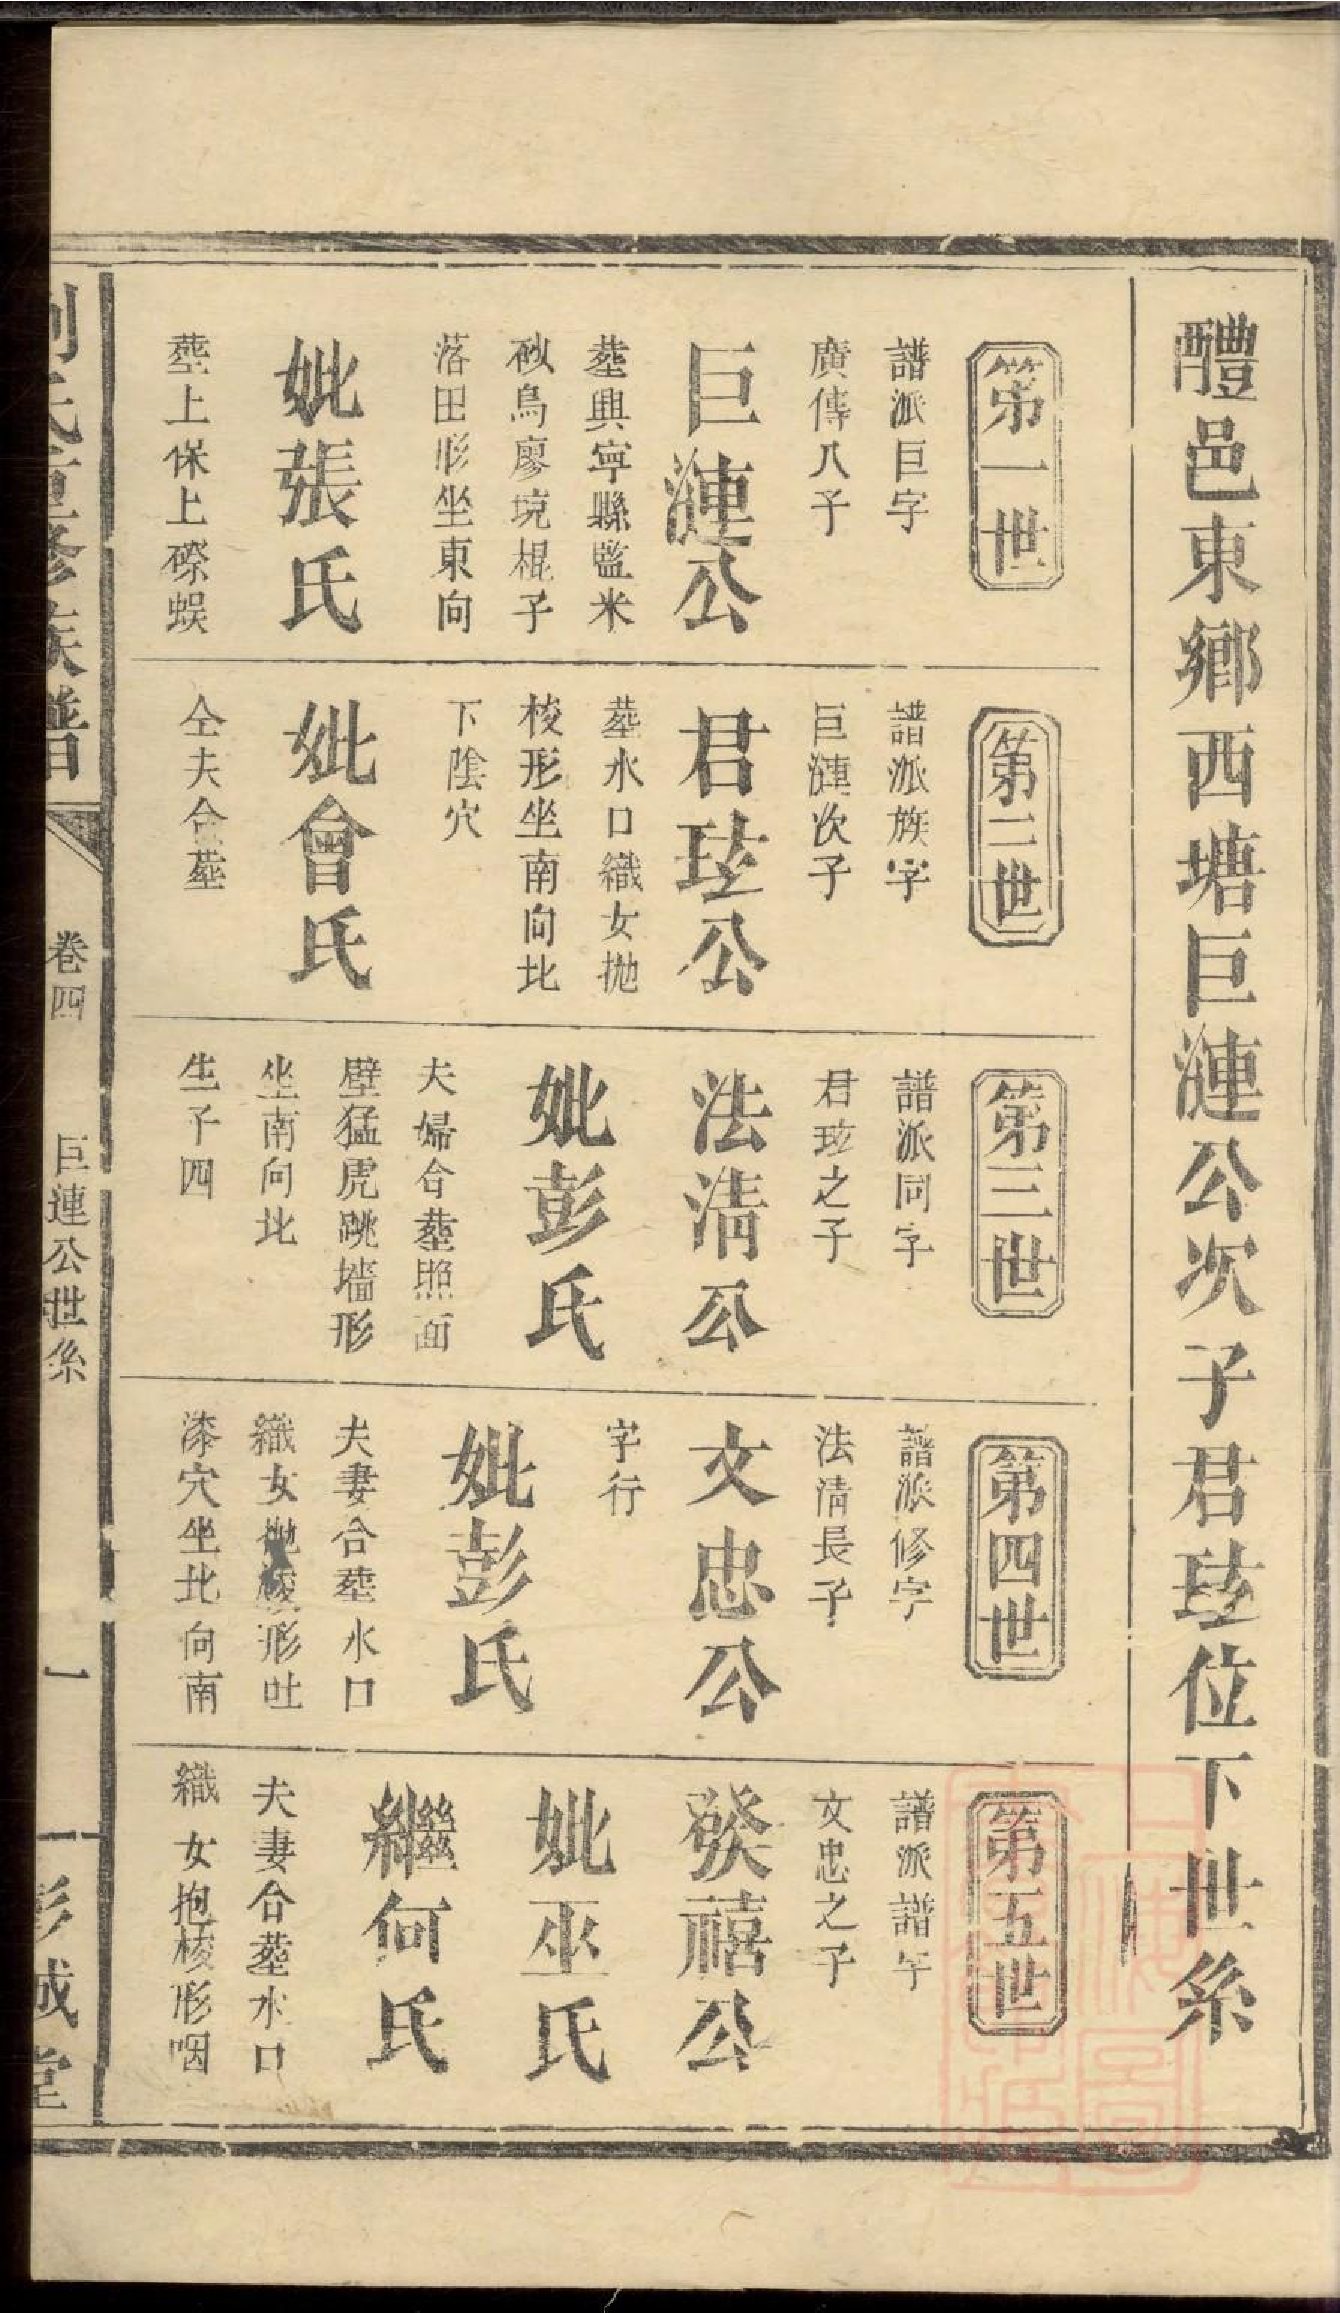 醴邑東鄉西塘巨漣公次子君玹位下世系
第一世
譜派巨字
廣傳八子
巨漣公
塟興寧縣監米
砂烏廖境棍子
落田形坐東向
妣張氏
塟上保上磜蜈
第二世
譜派族字
巨漣次子
君玹公
塟水口織女拋
梭形坐南向北
下陰穴
妣曾氏
仝夫合塟
第三世
譜派同字
君玹之子
法清公
妣彭氏
夫婦合塟照面
壁猛虎跳墻形
坐南向北
生子四
第四世
譜派修字
法清長子
文忠公
字行
妣彭氏
夫妻合塟水口
織女拋梭形吐
漆穴坐北向南
第五世
譜派譜字
文忠之子
發禧公
妣巫氏
繼何氏
夫妻合塟水口
織女抱梭形咽
劉氏重修族譜
卷四
巨連公世系
一
彭城堂